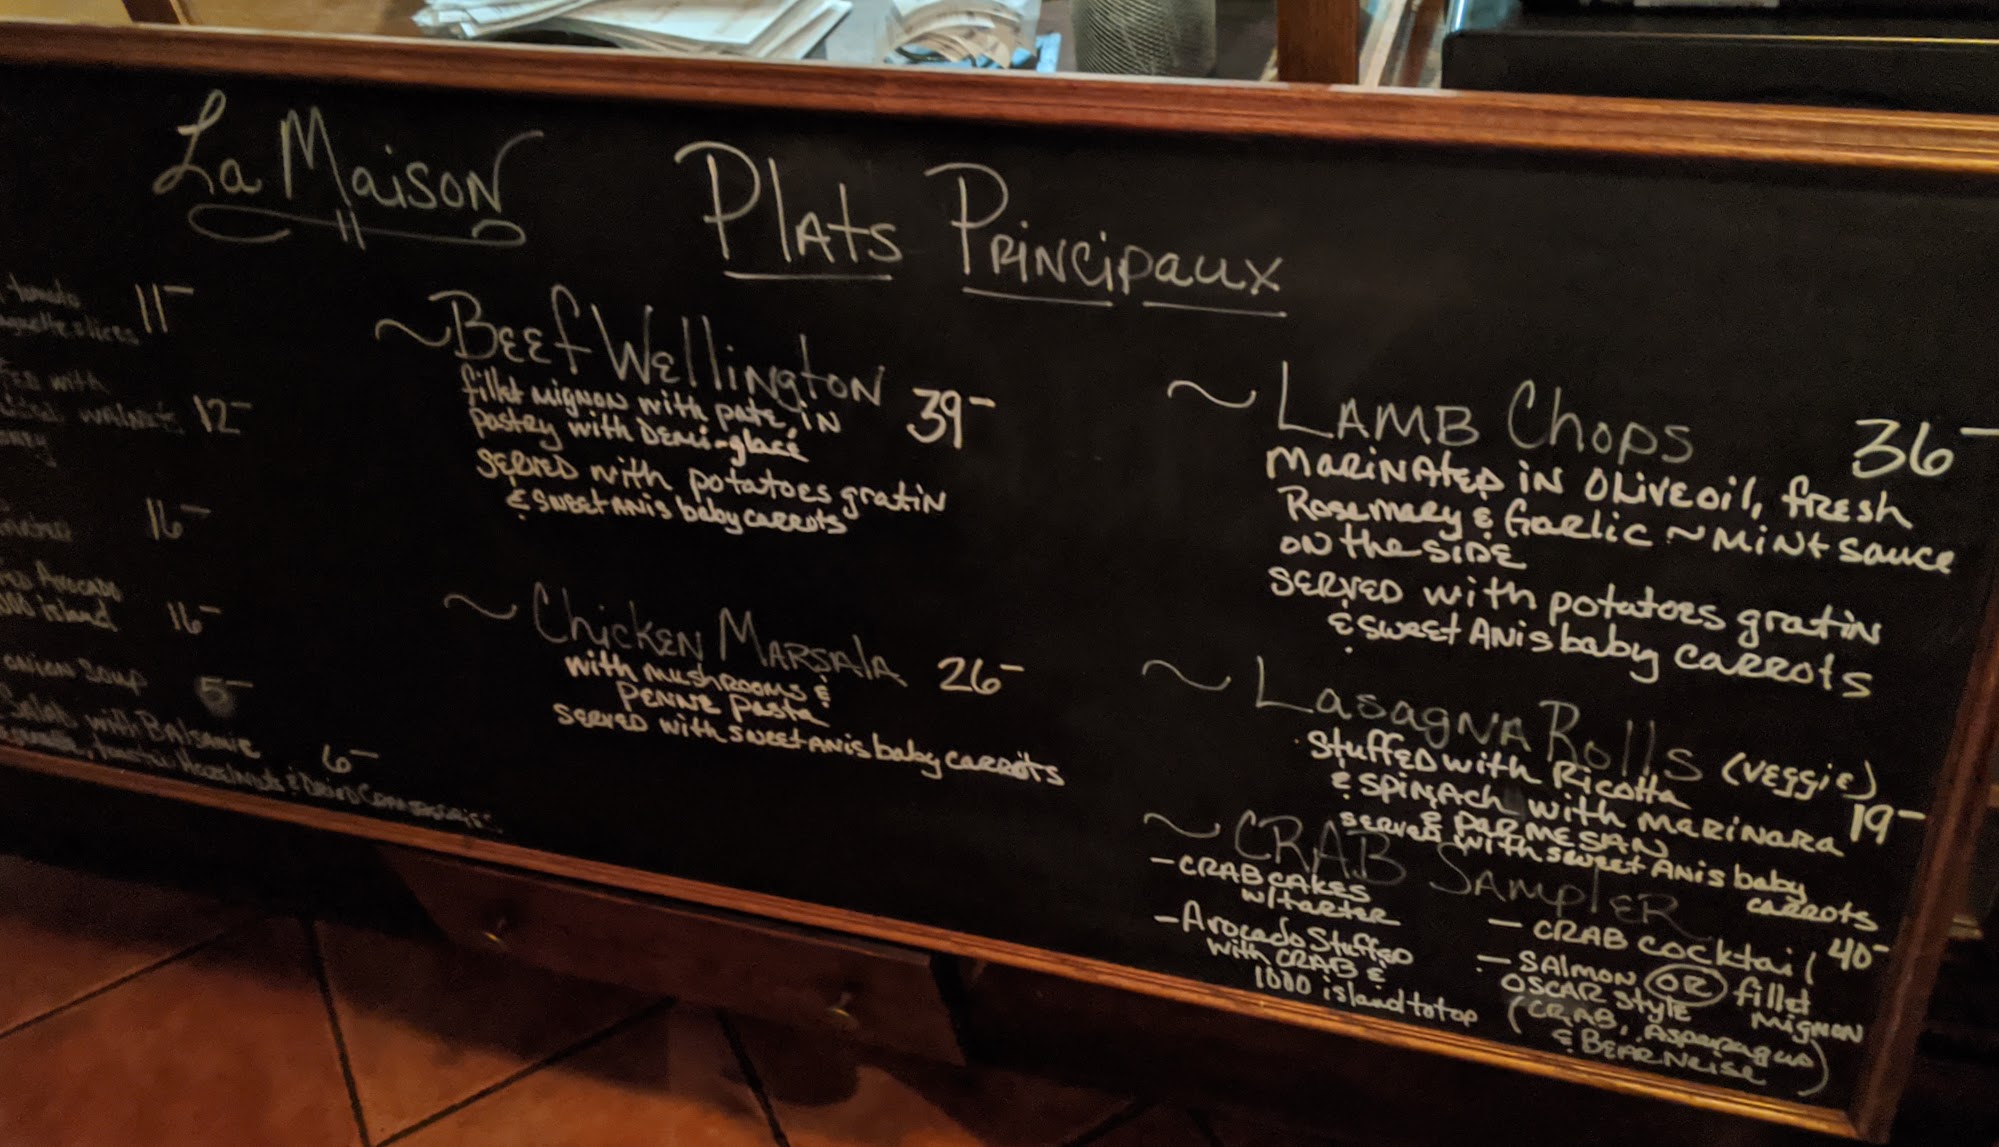 La Maison
tomato 11-
slices
with
walnuts 12-
16-
Avocado
island 16-
onion Soup 5-
Salad with Balsamic 6-
Hazelnuts &
Plats Principaux
~Beef Wellington 39-
fillet mignon with pate, in
pastry with Demi-glacé
served with potatoes gratin
& sweet Anis baby carrots
~Chicken Marsala 26-
with mushrooms &
Penne Pasta
served with sweet Anis baby carrots
~Lamb Chops 36-
Marinated in Olive oil, fresh
Rosemary & Garlic ~ Mint sauce
on the side
served with potatoes gratin
& sweet Anis baby carrots
~Lasagna Rolls (veggie)
Stuffed with Ricotta
& spinach with marinara 19-
& Parmesan
served with sweet Anis baby
carrots
~Crab Sampler 40-
- Crab cakes
w/tarter
- Avocado Stuffed
with Crab &
1000 island to top
- Crab cocktail
- Salmon, OR fillet
Oscar style Mignon
(Crab, Asparagus
& Bearneise)